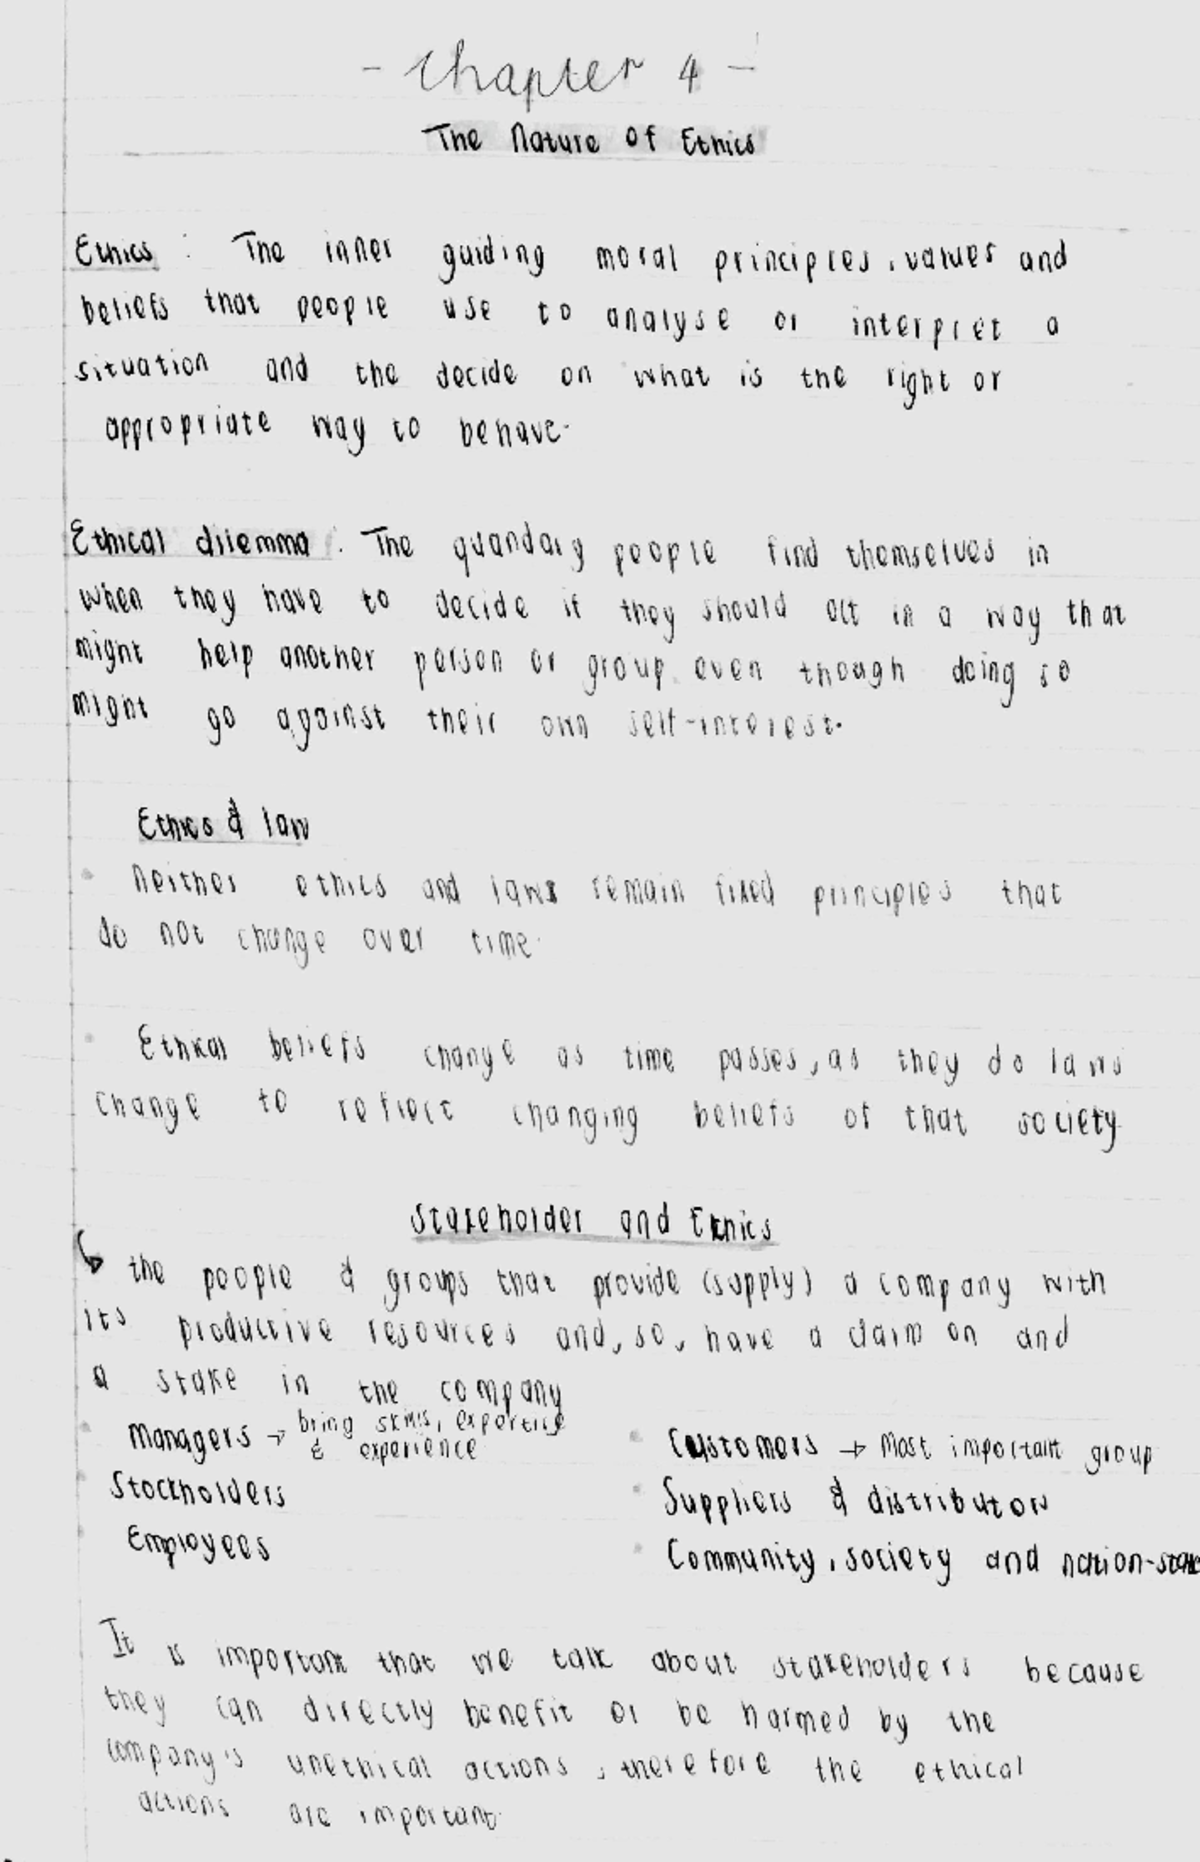 - Chapter 4 -
The Nature of Ethics
Ethics : The inner guiding moral principles, values and
beliefs that people use to analyse or interpret a
situation and the decide on what is the right or
appropriate way to behave.
Ethical dilemma : The quandary people find themselves in
when they have to decide if they should act in a way that
might help another person or group even though doing so
might go against their own self-interest.
Ethics & law
• Neither ethics and laws remain fixed principles that
do not change over time.
• Ethical beliefs change as time passes, as they do laws
change to reflect changing beliefs of that society
Stakeholder and Ethics
↳ the people & groups that provide (supply) a company with
its productive resources and, so, have a claim on and
a stake in the company
• Managers → bring skills, expertise
& experience
• Customers → Most important group
• Stockholders
• Suppliers & distributors
• Employees
• Community, society and nation-state
It is important that we talk about stakeholders because
they can directly benefit or be harmed by the
company's unethical actions, therefore the ethical
actions are important.